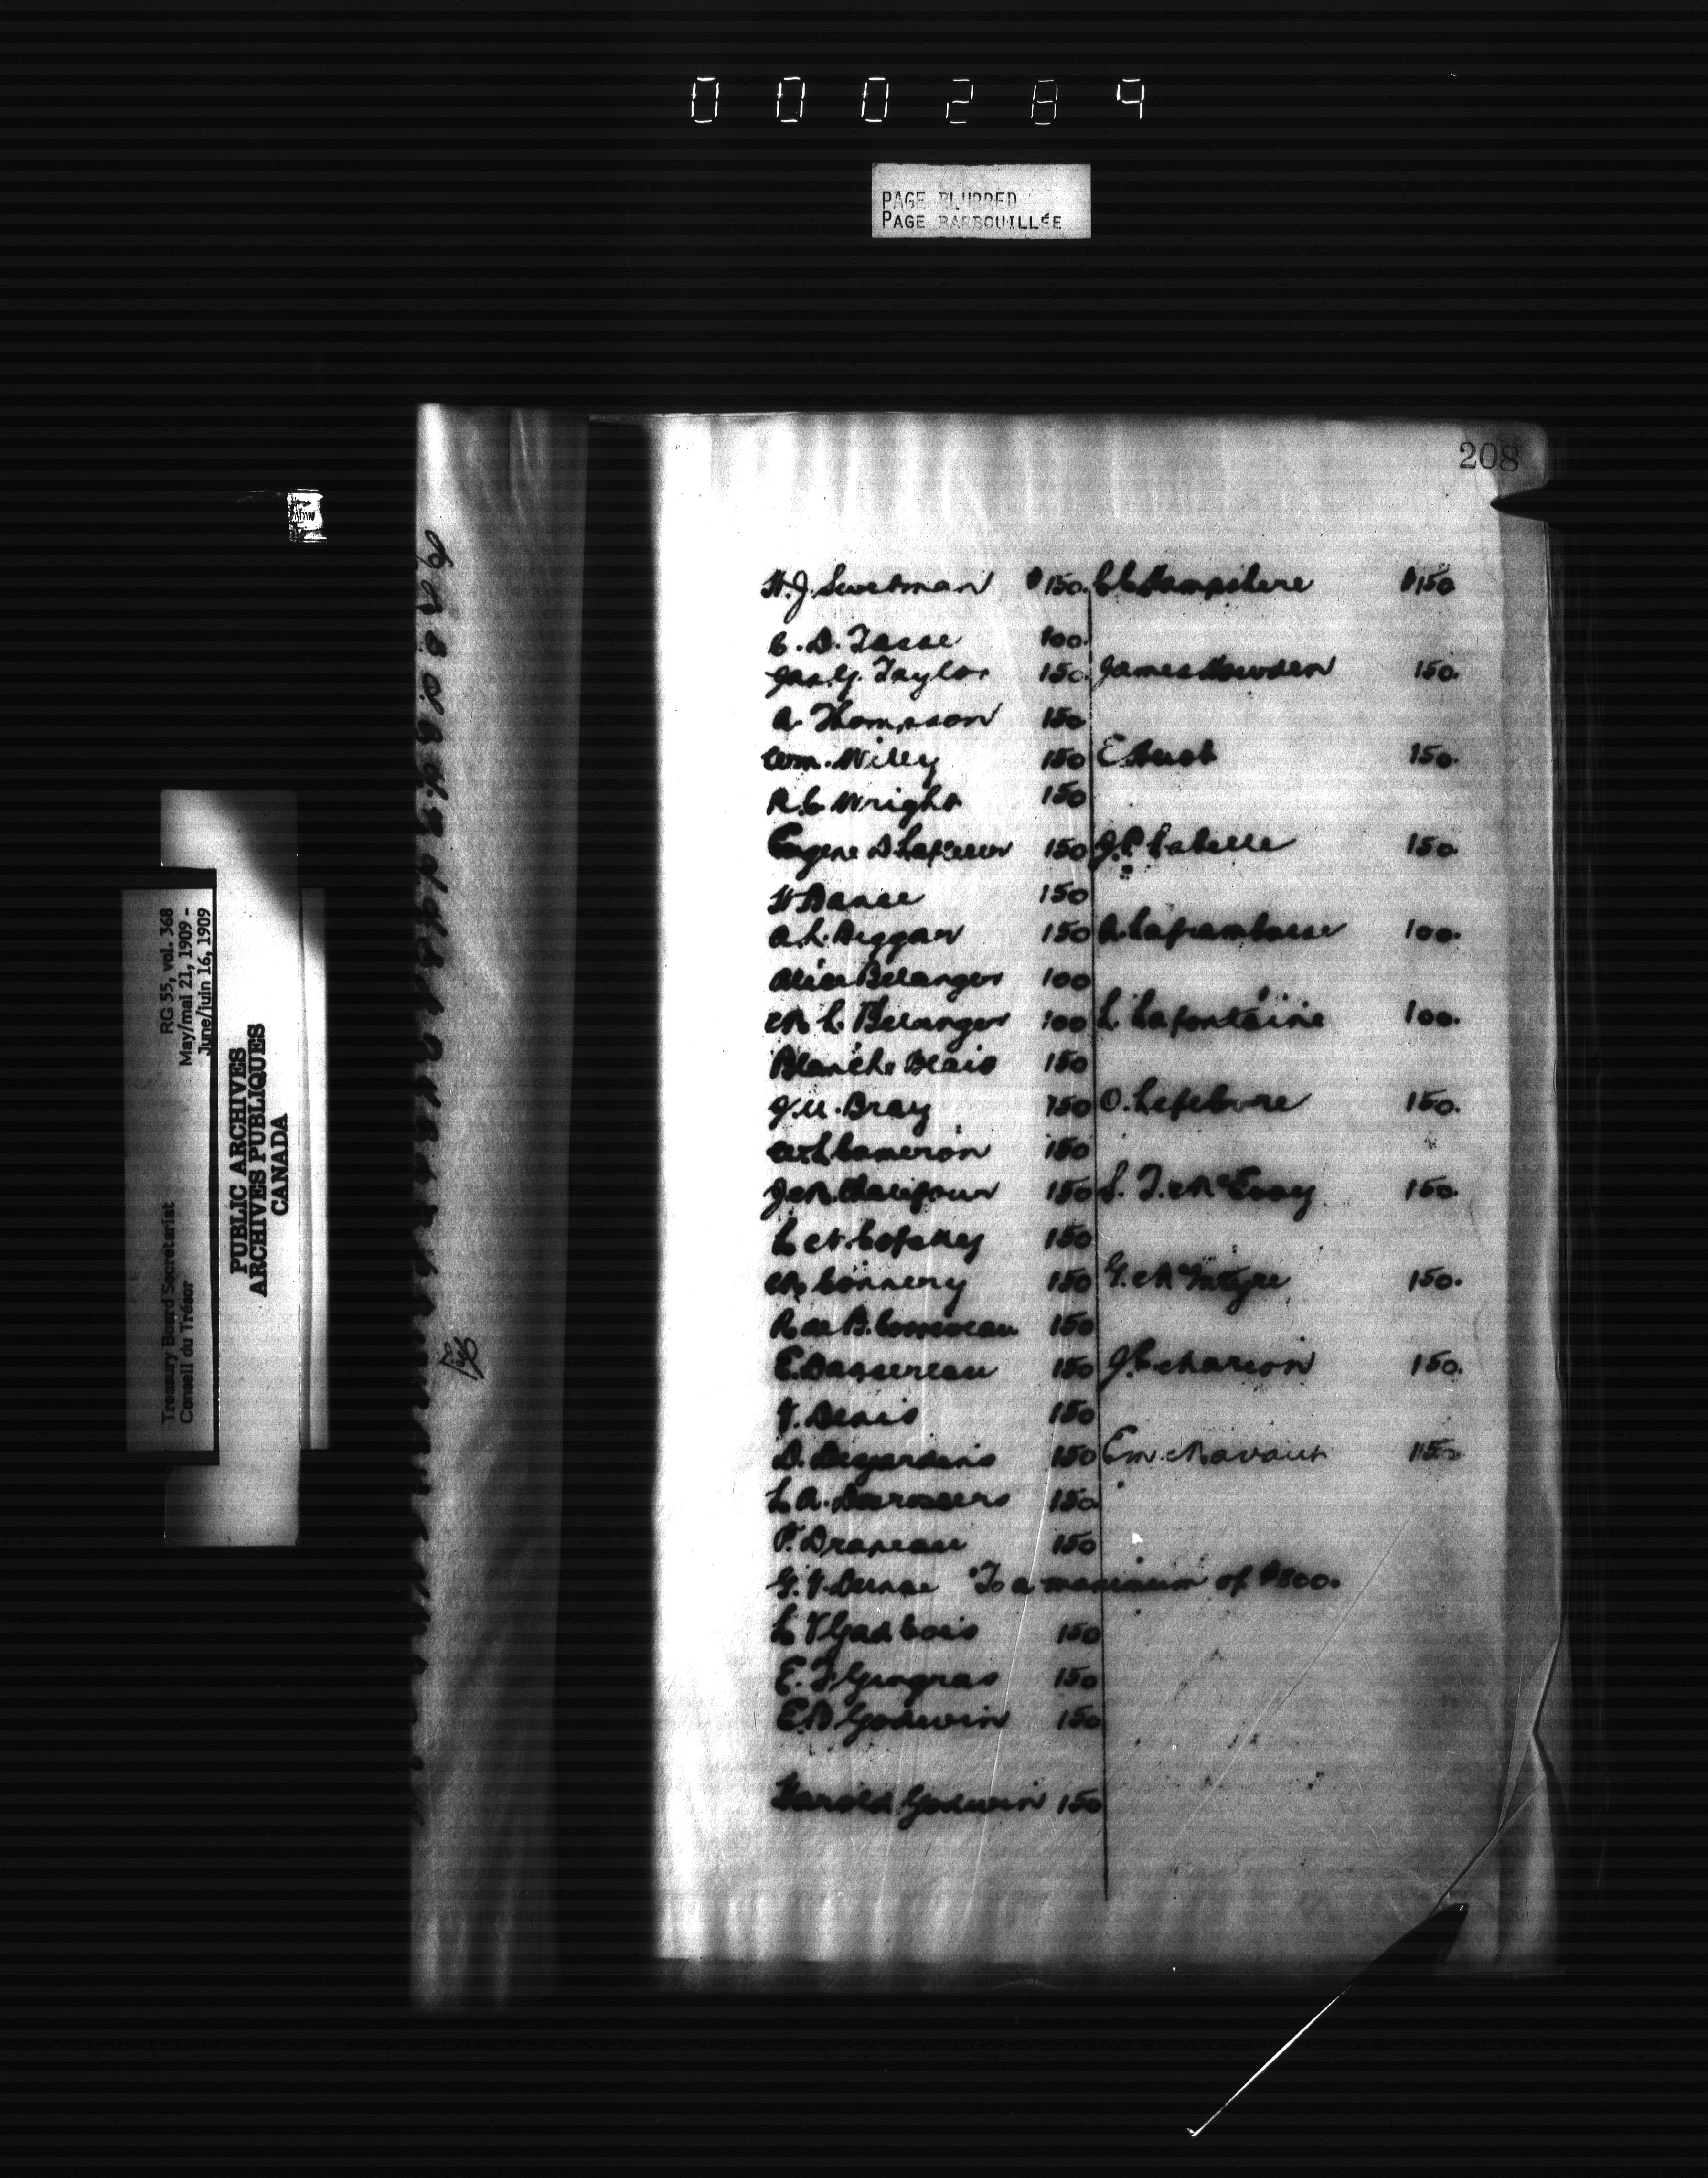 000289
PAGE BLURRED
PAGE BARBOUILLÉE
208
RG 55, vol. 368
May/mai 21, 1909 -
June/juin 16, 1909
Treasury Board Secretariat
Conseil du Trésor
PUBLIC ARCHIVES
ARCHIVES PUBLIQUES
CANADA
H. J. Sweetman $150. C C Hampshire $150
C. D. Tasse 100.
Jas. G. Taylor 150. James Howden 150.
A Thompson 150
Wm. Willy 150 E. 150.
R. C. Wright 150
Eugene D Lafleur 150 J. P. Labelle 150.
H 150
A. L. Biggar 150 A. Laframboise 100.
Alice Belanger 100
M L. Belanger 100 L. Lafontaine 100.
Blanche Blais 150
J. U. Bray 150 O. Lefebvre 150.
Cameron 150
J. N. 150 S. T. McEvoy 150.
L N. Cofsky 150
M Connery 150 G. McIntyre 150.
R de B. Corriveau 150
E. Dansereau 150 J. C. Marion 150.
V. Denis 150
D. Desjardins 150 Em. Mavaut 150
L A. Desrosiers 150
P. Drapeau 150
G. V. To a maximum of $800.
L V Gadbois 150
E. T. Gingras 150
E. B Godwin 150
Harold Godwin 150